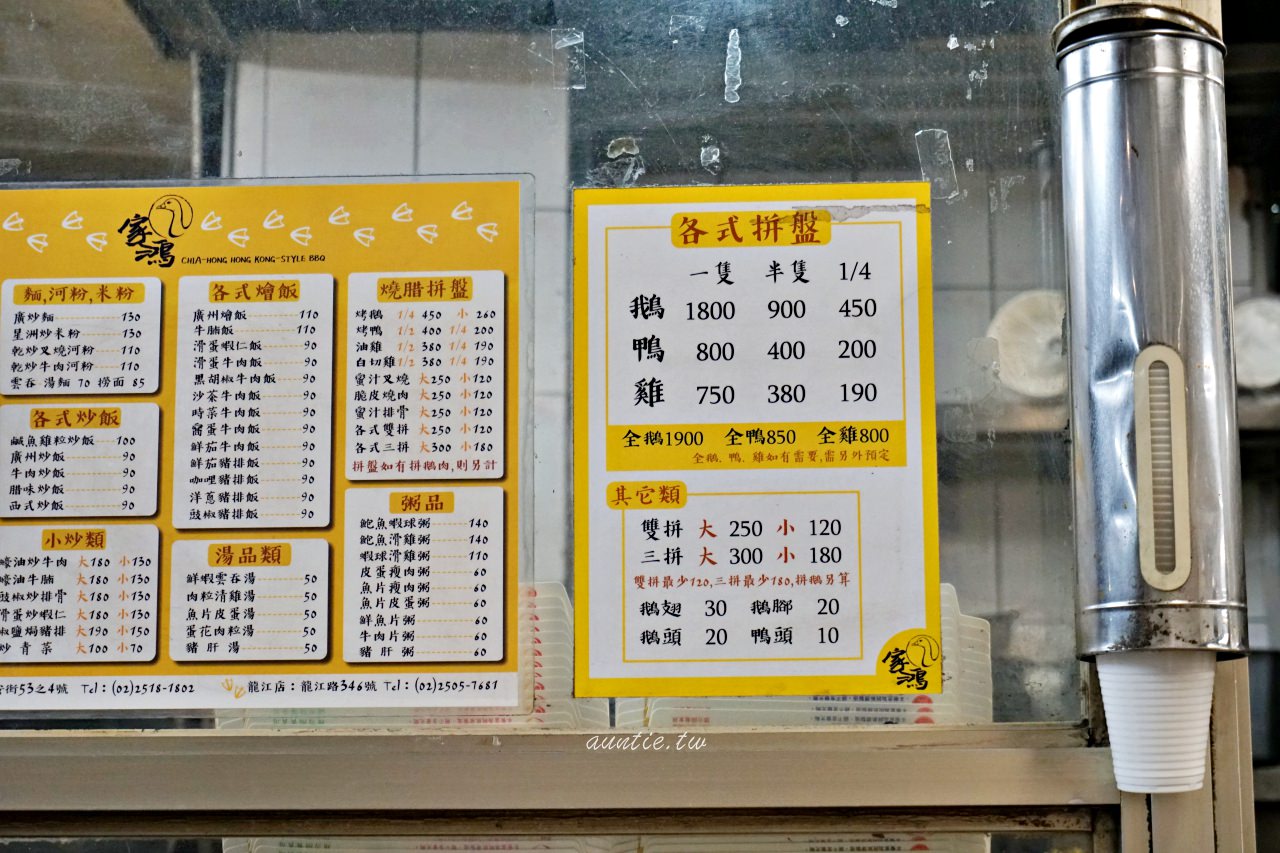 家鴻
CHIA-HONG HONG KONG-STYLE BBQ
麵,河粉,米粉
廣炒麵 130
星洲炒米粉 130
乾炒叉燒河粉 110
乾炒牛肉河粉 110
雲吞湯麵 70 撈面 85
各式炒飯
鹹魚雞粒炒飯 100
廣州炒飯 90
牛肉炒飯 90
腊味炒飯 90
西式炒飯 90
小炒類
蠔油炒牛肉 大180 小130
蠔油牛腩 大180 小130
豉椒炒排骨 大180 小130
滑蛋炒蝦仁 大180 小130
椒鹽焗豬排 大190 小150
炒青菜 大100 小70
各式燴飯
廣州燴飯 110
牛腩飯 110
滑蛋蝦仁飯 90
滑蛋牛肉飯 90
黑胡椒牛肉飯 90
沙茶牛肉飯 90
時菜牛肉飯 90
窩蛋牛肉飯 90
鮮茄牛肉飯 90
鮮茄豬排飯 90
咖哩豬排飯 90
洋蔥豬排飯 90
豉椒豬排飯 90
湯品類
鮮蝦雲吞湯 50
肉粒清雞湯 50
魚片皮蛋湯 50
蛋花肉粒湯 50
豬肝湯 50
燒腊拼盤
烤鵝 1/4 450 小 260
烤鴨 1/2 400 1/4 200
油雞 1/2 380 1/4 190
白切雞 1/2 380 1/4 190
蜜汁叉燒 大250 小120
脆皮燒肉 大250 小120
蜜汁排骨 大250 小120
各式雙拼 大250 小120
各式三拼 大300 小180
拼盤如有拼鵝肉,則另計
粥品
鮑魚蝦球粥 140
鮑魚滑雞粥 140
蝦球滑雞粥 110
皮蛋瘦肉粥 60
魚片瘦肉粥 60
魚片皮蛋粥 60
鮮魚片粥 60
牛肉片粥 60
豬肝粥 60
街53之4號 Tel:(02)2518-1802 龍江店:龍江路346號 Tel:(02)2505-7681
各式拼盤
一隻 半隻 1/4
鵝 1800 900 450
鴨 800 400 200
雞 750 380 190
全鵝1900 全鴨850 全雞800
全鵝、鴨、雞如有需要,需另外預定
其它類
雙拼 大 250 小 120
三拼 大 300 小 180
雙拼最少120,三拼最少180,拼鵝另算
鵝翅 30 鵝腳 20
鵝頭 20 鴨頭 10
家鴻
auntie.tw